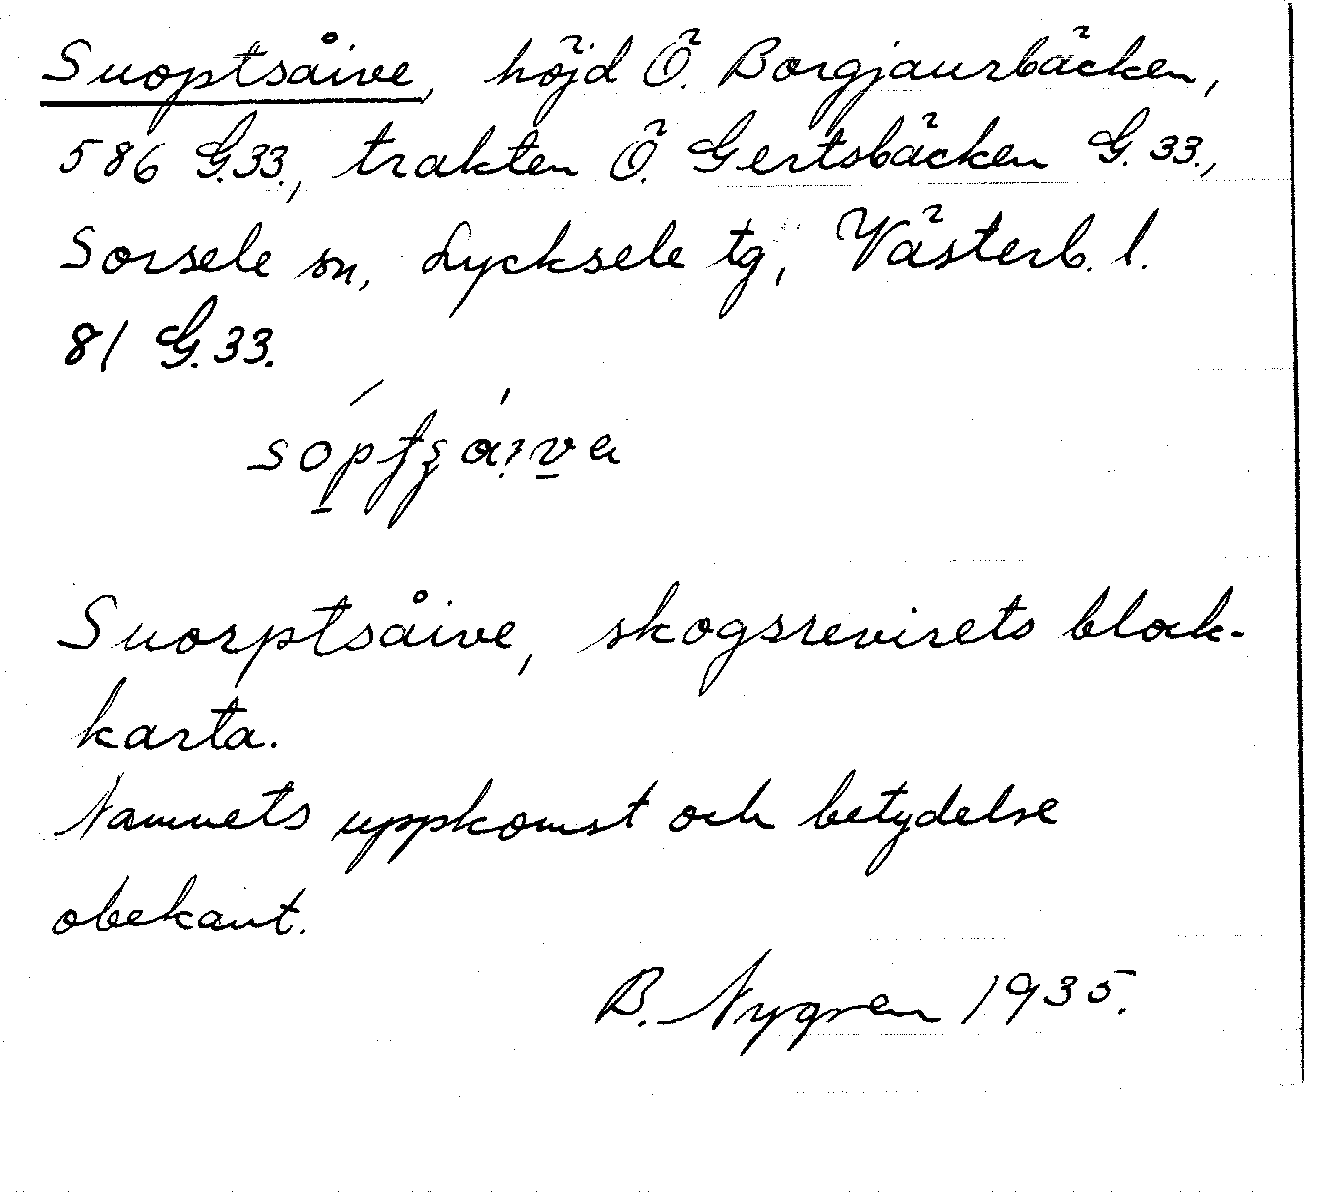 Suoptsåive, höjd Ö. Borgjaurbäcken,
586 G.33., trakten Ö. Gertsbäcken G. 33.,
Sorsele sn, Lycksele tg, Västerb. l.
81 G.33.
Suorptsåive, skogsrevirets block-
karta.
Namnets uppkomst och betydelse
obekant.
B. Nygren 1935.